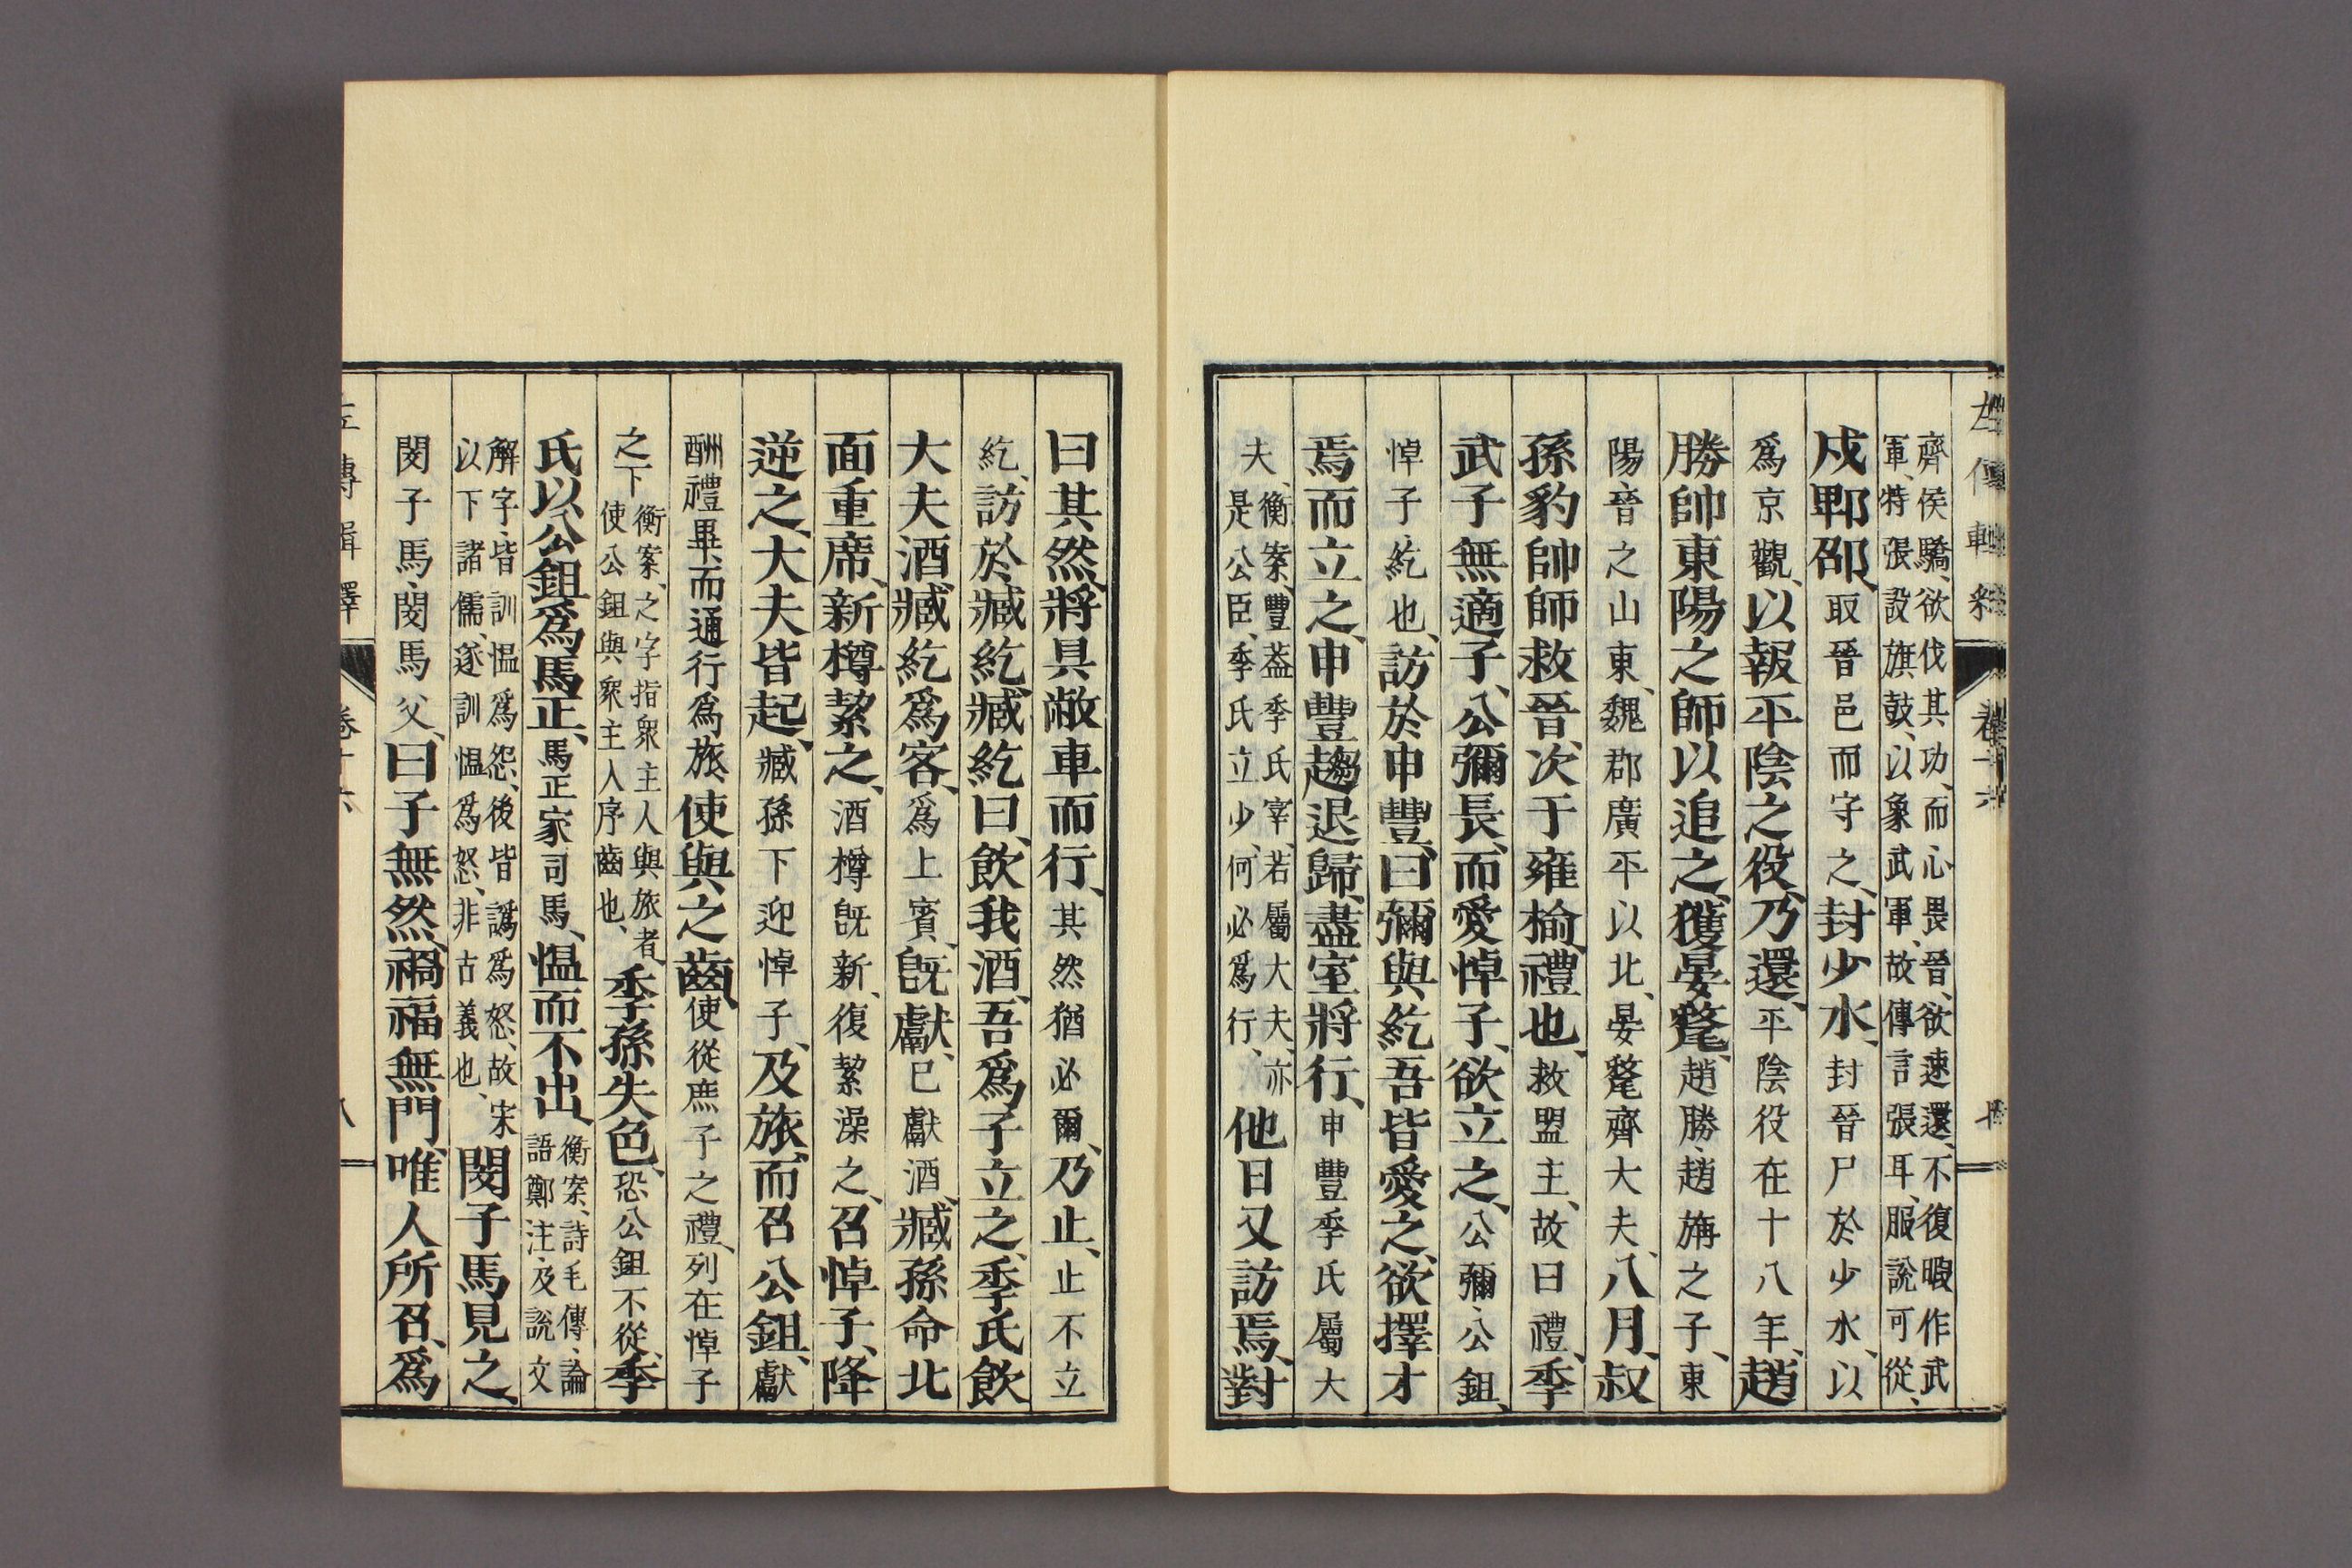 齊侯驕、欲伐其功、而心畏晉、欲速還、不復暇作武
軍、特張設旗鼓、以象武軍、故傳言張耳、服說可從、
戍郫邵、取晉邑而守之、封少水、封晉尸於少水、以
爲京觀、以報平陰之役、乃還、平陰役在十八年、趙
勝帥東陽之師以追之、獲晏氂、趙勝、趙旃之子、東
陽、晉之山東、魏郡廣平以北、晏氂齊大夫、八月、叔
孫豹帥師救晉、次于雍榆、禮也、救盟主、故曰禮、季
武子無適子、公彌長、而愛悼子、欲立之、公彌、公鉏、
悼子、紇也、訪於申豐、曰彌與紇吾皆愛之、欲擇才
焉而立之、申豐趨退歸、盡室將行、申豐季氏屬大
夫、衡案、豐葢季氏宰、若屬大夫、亦
是公臣、季氏立少、何必爲行、他日又訪焉、對
曰其然、將具敝車而行、其然猶必爾、乃止、止不立
紇、訪於臧紇、臧紇曰、飲我酒、吾爲子立之、季氏飲
大夫酒、臧紇爲客、爲上賓、既獻、已獻酒、臧孫命北
面重席、新樽絜之、酒樽既新、復絜澡之、召悼子、降
逆之、大夫皆起、臧孫下迎悼子、及旅、而召公鉏、獻
酬禮畢、而通行爲旅、使與之齒、使從庶子之禮、列在悼子
之下、衡案、之字指衆主人與旅者、
使公鉏與衆主人序齒也、季孫失色、恐公鉏不從、季
氏以公鉏爲馬正、馬正家司馬、慍而不出、衡案、詩毛傳、論
語鄭注、及說文
解字、皆訓慍爲怨、後皆譌爲怒、故宋
以下諸儒、逐訓慍爲怒、非古義也、閔子馬見之、
閔子馬、閔馬父、曰子無然、禍福無門、唯人所召、爲